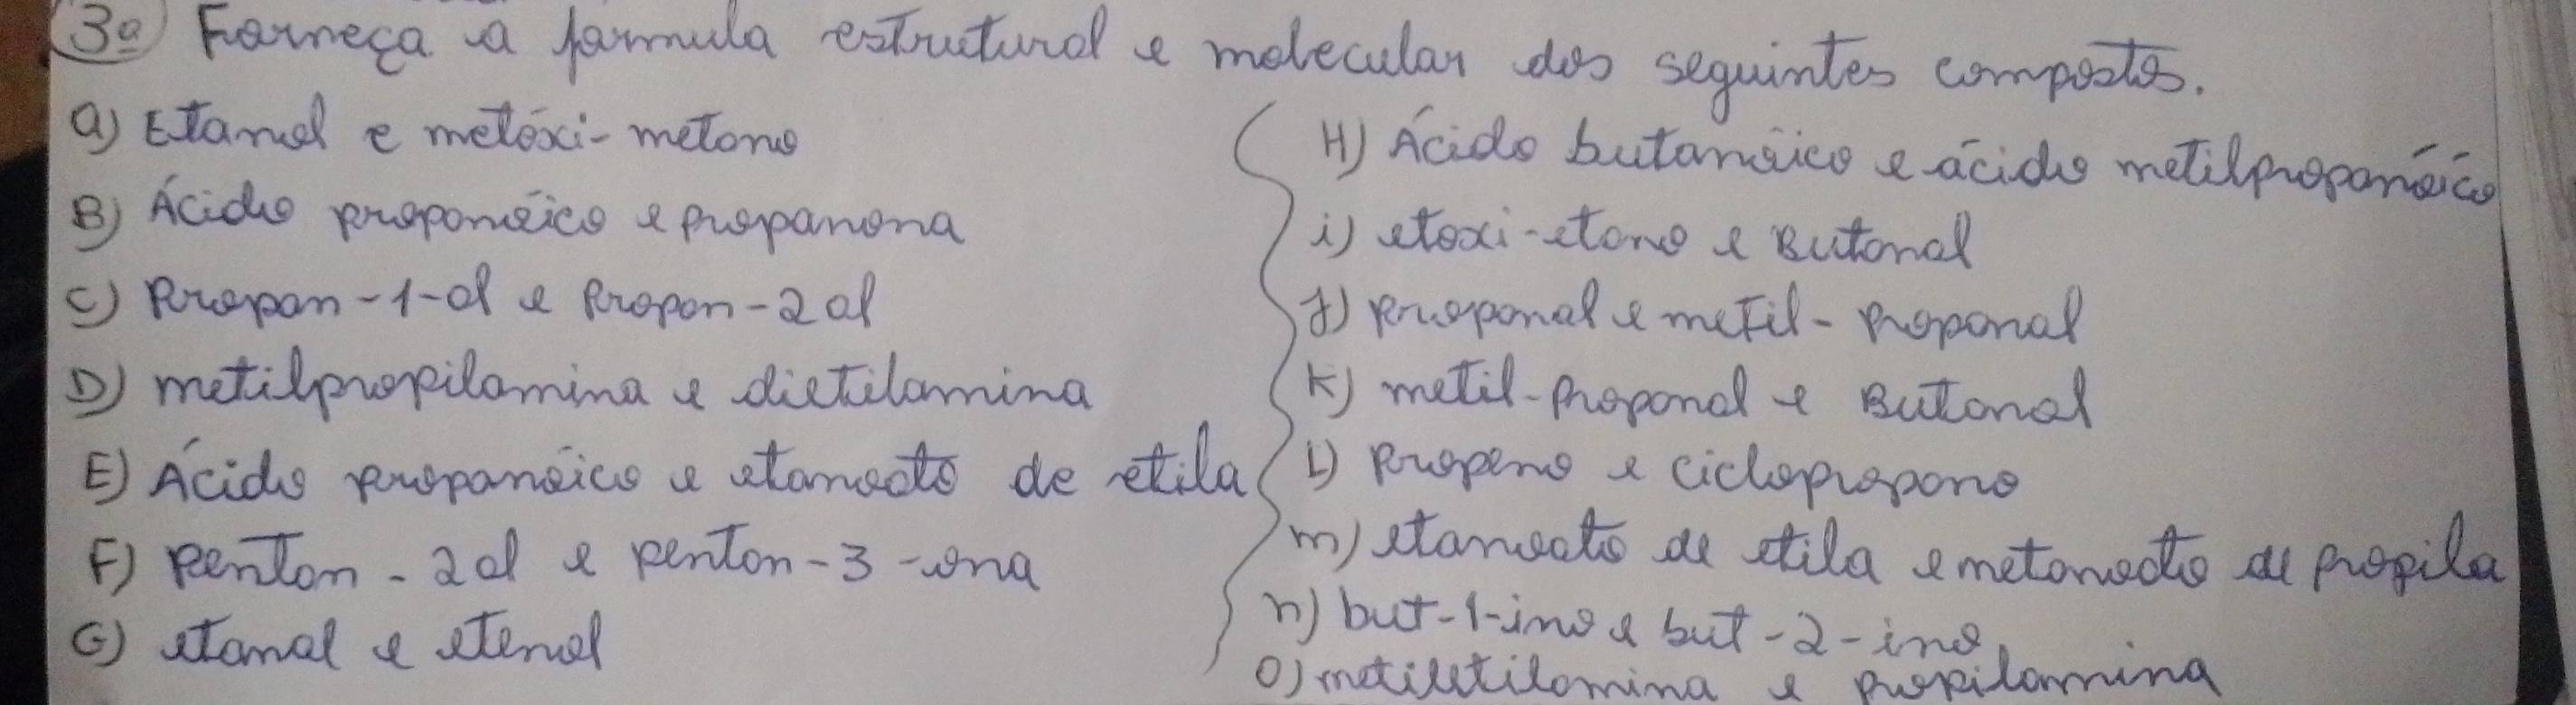 3ª Forneça a formula estrutural e molecular dos seguintes compostos.
a) Etanol e metóxi-metano
B) Ácido propanóico e propanona
C) Propan-1-ol e Propan-2 ol
D) metilpropilamina e dietilamina
E) Ácido propanóico e etanoato de etila
F) Pentan-2 ol e pentan-3-ona
G) etanal e etenol
H) Ácido butanóico e ácido metilpropanóico
i) etoxi-etano e Butanol
J) propanal e metil-propanal
K) metil-propanol e Butanol
L) Propeno e ciclopropano
m) etanoato de etila e metanoato de propila
n) but-1-ino e but-2-ino
O) metiletilamina e propilamina